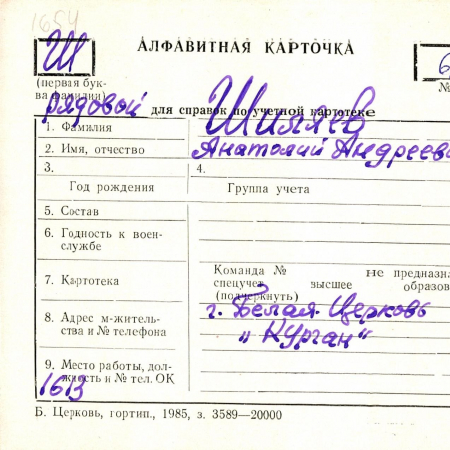 1654
Ш
АЛФАВИТНАЯ КАРТОЧКА
6
(первая бук-
ва фамилии)
№
рядовой
для справок по учетной картотеке
1. Фамилия Шиляев
2. Имя, отчество Анатолий Андрееви
3. 4.
Год рождения Группа учета
5. Состав
6. Годность к воен-
службе
Команда № не предназна
7. Картотека спецучет высшее образов
(подчеркнуть)
8. Адрес м-житель- г. Белая Церковь
ства и № телефона „Курган“
9. Место работы, дол-
жность и № тел. ОК
1613
Б. Церковь, гортип., 1985, з. 3589—20000